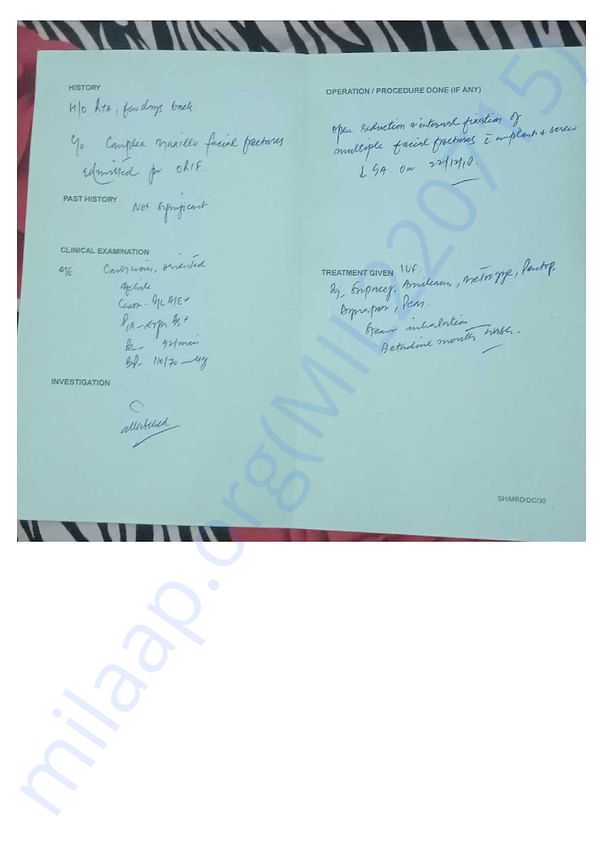 HISTORY
H/o RTA, few days back.
c/o Complex maxillo facial fractures
admitted for ORIF.
PAST HISTORY
Not significant
CLINICAL EXAMINATION
O/E Conscious, oriented
afebrile
Chest - B/L A/E+
P/A - soft BS+
PR - 92/min
BP - 110/70 mmHg
INVESTIGATION
attached
OPERATION / PROCEDURE DONE (IF ANY)
open reduction & internal fixation of
multiple facial fractures c implant & screw
GA. On 22/12/18.
TREATMENT GIVEN IVF
Inj- Amikacin, metrogyl, Pantop,
Steam inhalation
Betadine mouth wash.
SH/MRD/DC/30
milaap.org(MIL220715)